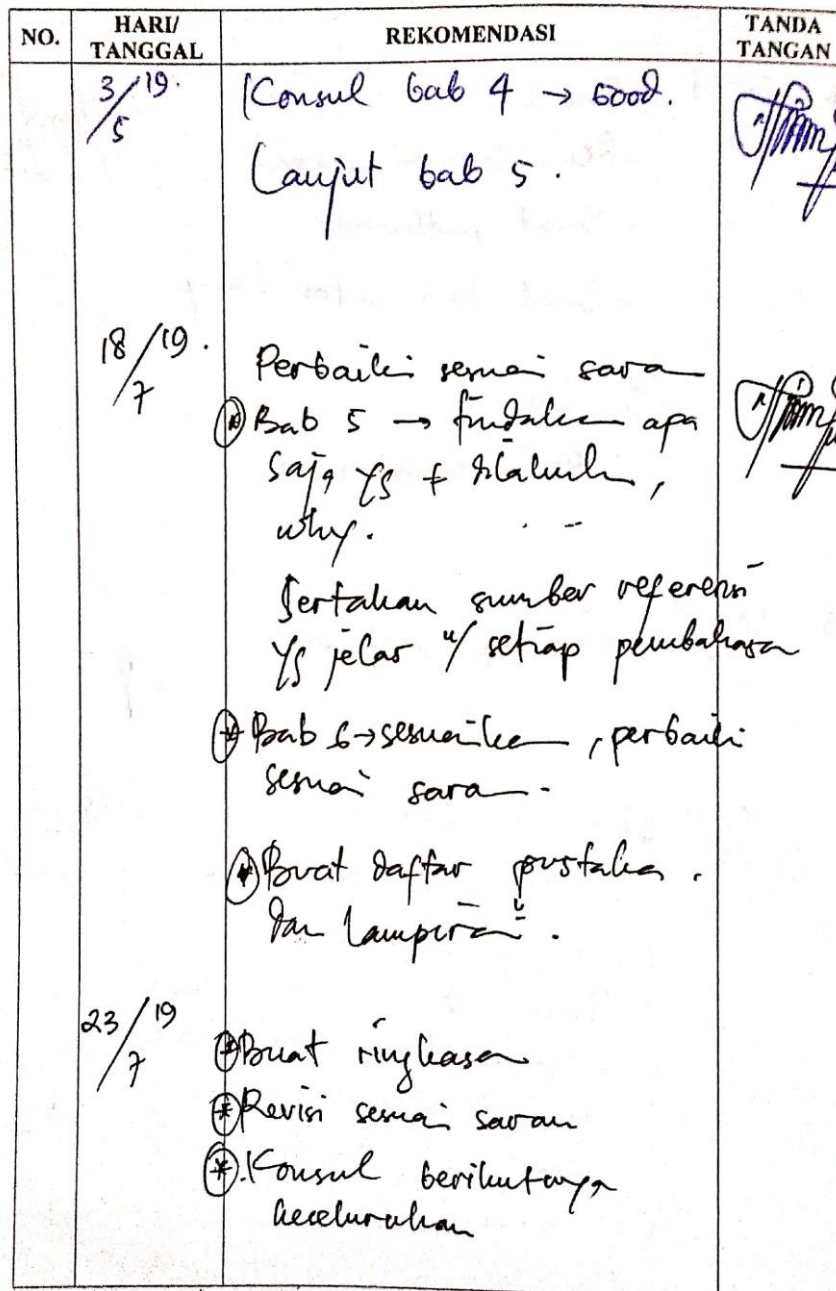 NO. HARI/ TANGGAL REKOMENDASI TANDA TANGAN
3/5 19. Konsul bab 4 → Good.
Lanjut bab 5.
18/7 19. Perbaiki sesuai saran
* Bab 5 → tindakan apa
saja yg t dilakuk,
why.
Sertakan sumber referensi
yg jelas u/ setiap pembahasan
* Bab 6 → sesuaikan, perbaiki
sesuai saran.
* Buat daftar pustaka.
dan lampiran".
23/7 19 * Buat ringkasan
* Revisi sesuai saran
* Konsul berikutnya
keseluruhan